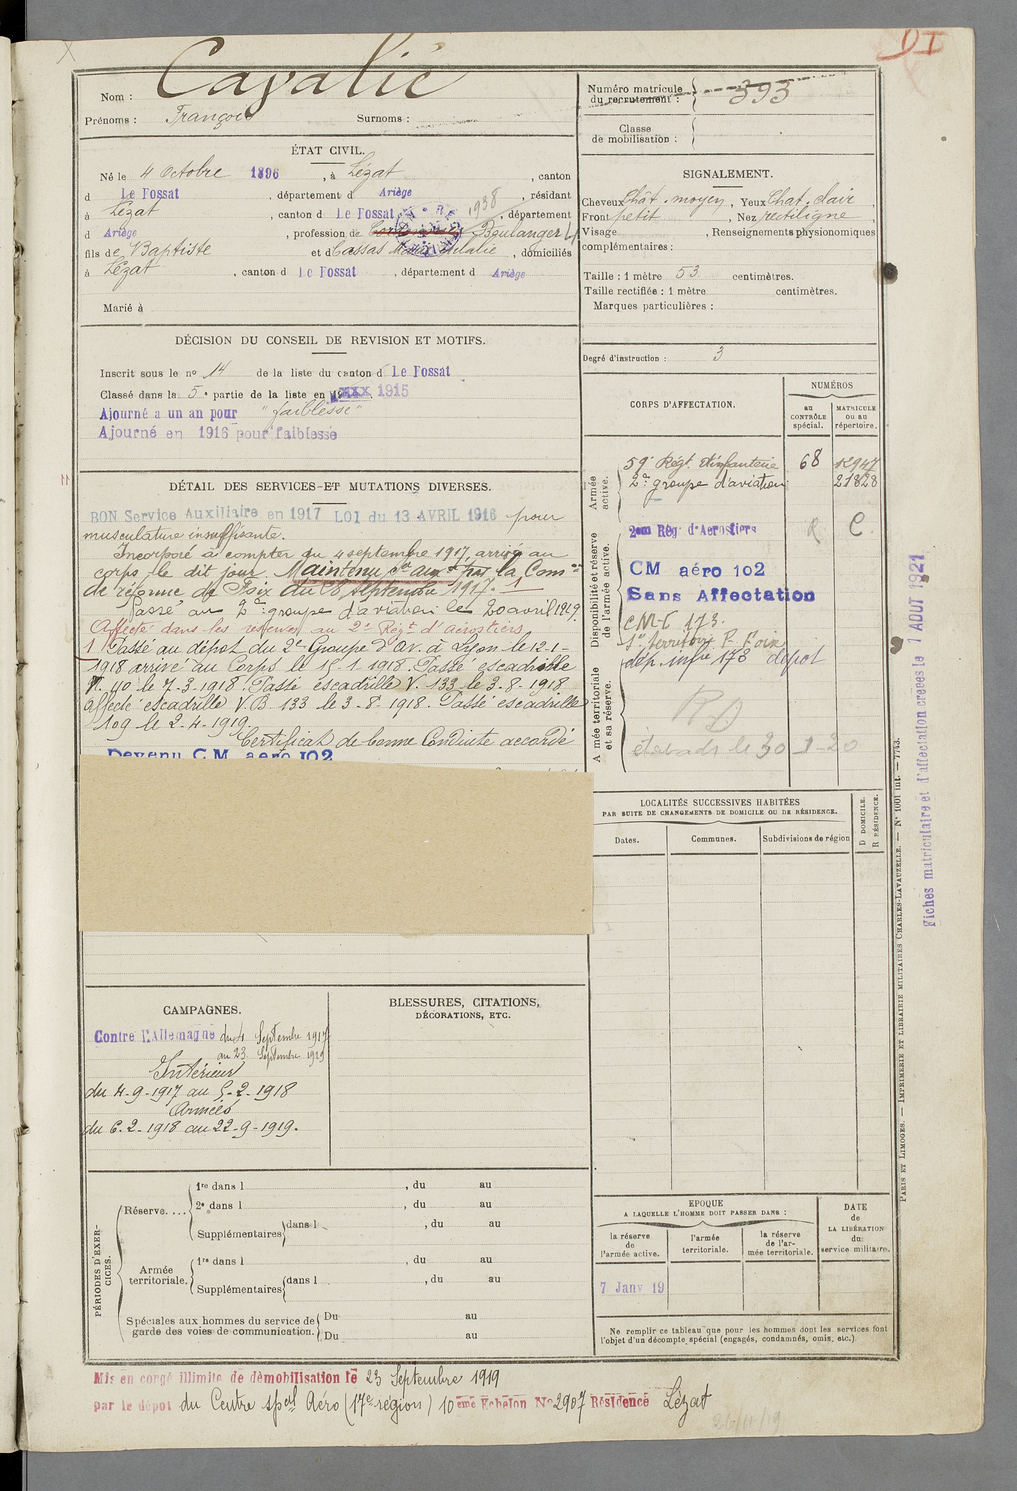 Nom : Cavalié
Prénoms : François Surnoms :
Numéro matricule du recrutement : 393
Classe de mobilisation :
ÉTAT CIVIL.
Né le 4 Octobre 1896, à Lézat, canton
d Le Fossat, département d Ariège, résidant
à Lézat, canton d Le Fossat, département
1938
d Ariège, profession de Boulanger
fils de Baptiste et de Cassas Eulalie, domiciliés
à Lézat, canton d Le Fossat, département d Ariège
Marié à
SIGNALEMENT.
Cheveux Chât. moyen, Yeux Chat. clair,
Front petit, Nez rectiligne,
Visage , Renseignements physionomiques
complémentaires :
Taille : 1 mètre 53 centimètres.
Taille rectifiée : 1 mètre centimètres.
Marques particulières :
Degré d'instruction : 3
DÉCISION DU CONSEIL DE REVISION ET MOTIFS.
Inscrit sous le no 14 de la liste du canton d Le Fossat
Classé dans la 5e partie de la liste en 1915
Ajourné a un an pour "faiblesse"
Ajourné en 1916 pour faiblesse
CORPS D'AFFECTATION.
NUMÉROS
au CONTRÔLE spécial.
MATRICULE ou au répertoire.
Armée active.
59e Régt. d'infanterie 68
2e groupe d'aviation 21828
Disponibilité et réserve de l'armée active.
2eme Rég. d'Aerostiers
CM aéro 102
Sans Affectation
A mée territoriale et sa réserve.
dép. infie 173 dépot
DÉTAIL DES SERVICES ET MUTATIONS DIVERSES.
BON Service Auxiliaire en 1917 LOI du 13 AVRIL 1916 pour
musculature insuffisante.
Incorporé à compter du 4 septembre 1917, arrivé au
corps le dit jour. Maintenu par la Comon
de réforme de Foix du 18 septembre 1917.
Passé au 2e groupe d'aviation le 20 avril 1919.
Affecté dans les réserves au 2e Régt d'aérostiers
Passé au dépot du 2e Groupe d'Av. à Lyon le 12-1-
1918 arrivé au Corps le 15-1-1918. Passé escadrille
V. 40 le 7-3-1918. Passé escadrille V. 133 le 3-8-1918
affecté escadrille V.B 133 le 3-8-1918. Passé escadrille
109 le 2-4-1919.
Certificat de bonne Conduite accordé
Devenu CM aéro 102
LOCALITÉS SUCCESSIVES HABITÉES
PAR SUITE DE CHANGEMENTS DE DOMICILE OU DE RÉSIDENCE.
Dates. Communes. Subdivisions de région
D DOMICILE.
R RÉSIDENCE.
CAMPAGNES.
Contre l'Allemagne du 4 Septembre 1917
au 23 Septembre 1919
Intérieur
du 4-9-1917 au 5-2-1918
Armées
du 6-2-1918 au 22-9-1919.
BLESSURES, CITATIONS,
DÉCORATIONS, ETC.
PÉRIODES D'EXERCICES.
Réserve....
1re dans l , du au
2e dans l , du au
Supplémentaires dans l , du au
Armée territoriale.
1re dans l , du au
Supplémentaires dans l , du au
Spéciales aux hommes du service de garde des voies de communication.
Du au
Du au
EPOQUE
A LAQUELLE L'HOMME DOIT PASSER DANS :
la réserve de l'armée active.
l'armée territoriale.
la réserve de l'armée territoriale.
DATE de LA LIBÉRATION du service militaire.
7 Janv 19
Ne remplir ce tableau que pour les hommes dont les services font
l'objet d'un décompte spécial (engagés, condamnés, omis, etc.)
Mis en congé illimité de démobilisation le 23 Septembre 1919
par le dépot du Centre spal Aéro (17e région) 10eme Echelon No 2907 Résidence Lézat
PARIS ET LIMOGES. — IMPRIMERIE ET LIBRAIRIE MILITAIRES CHARLES-LAVAUZELLE. — No 1001 int. — 7743.
Fiches matriculaire et d'affectation créées le 1 AOUT 1921